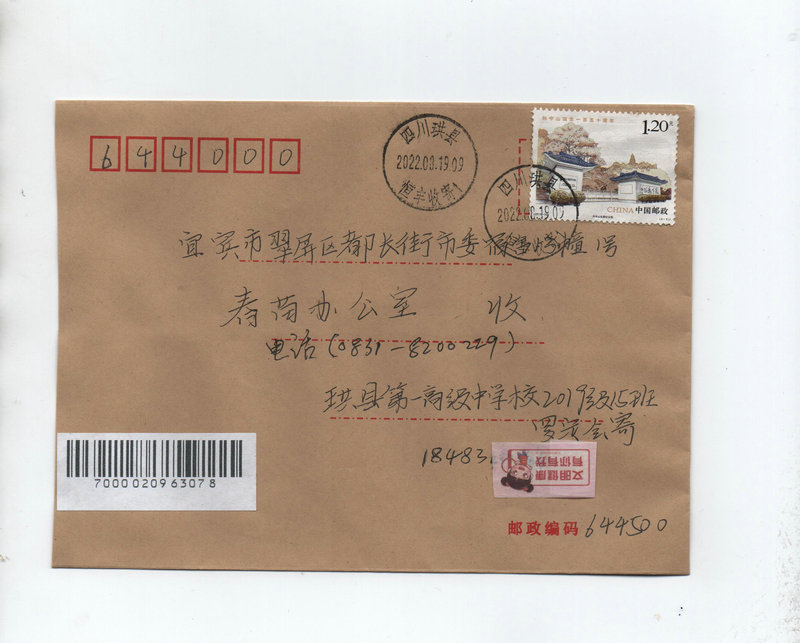 644000
四川珙县
2022.08.19.09
恒丰收寄1
孙中山诞生一百五十周年
1.20元
CHINA 中国邮政
四川珙县
2022.08.19.09
宜宾市翠屏区都长街市委 1号
春苗办公室 收
电话(0831-8200229)
珙县第一高级中学校2019级15班
罗 寄
18483
文明健康
有你有我
7000020963078
邮政编码 644500